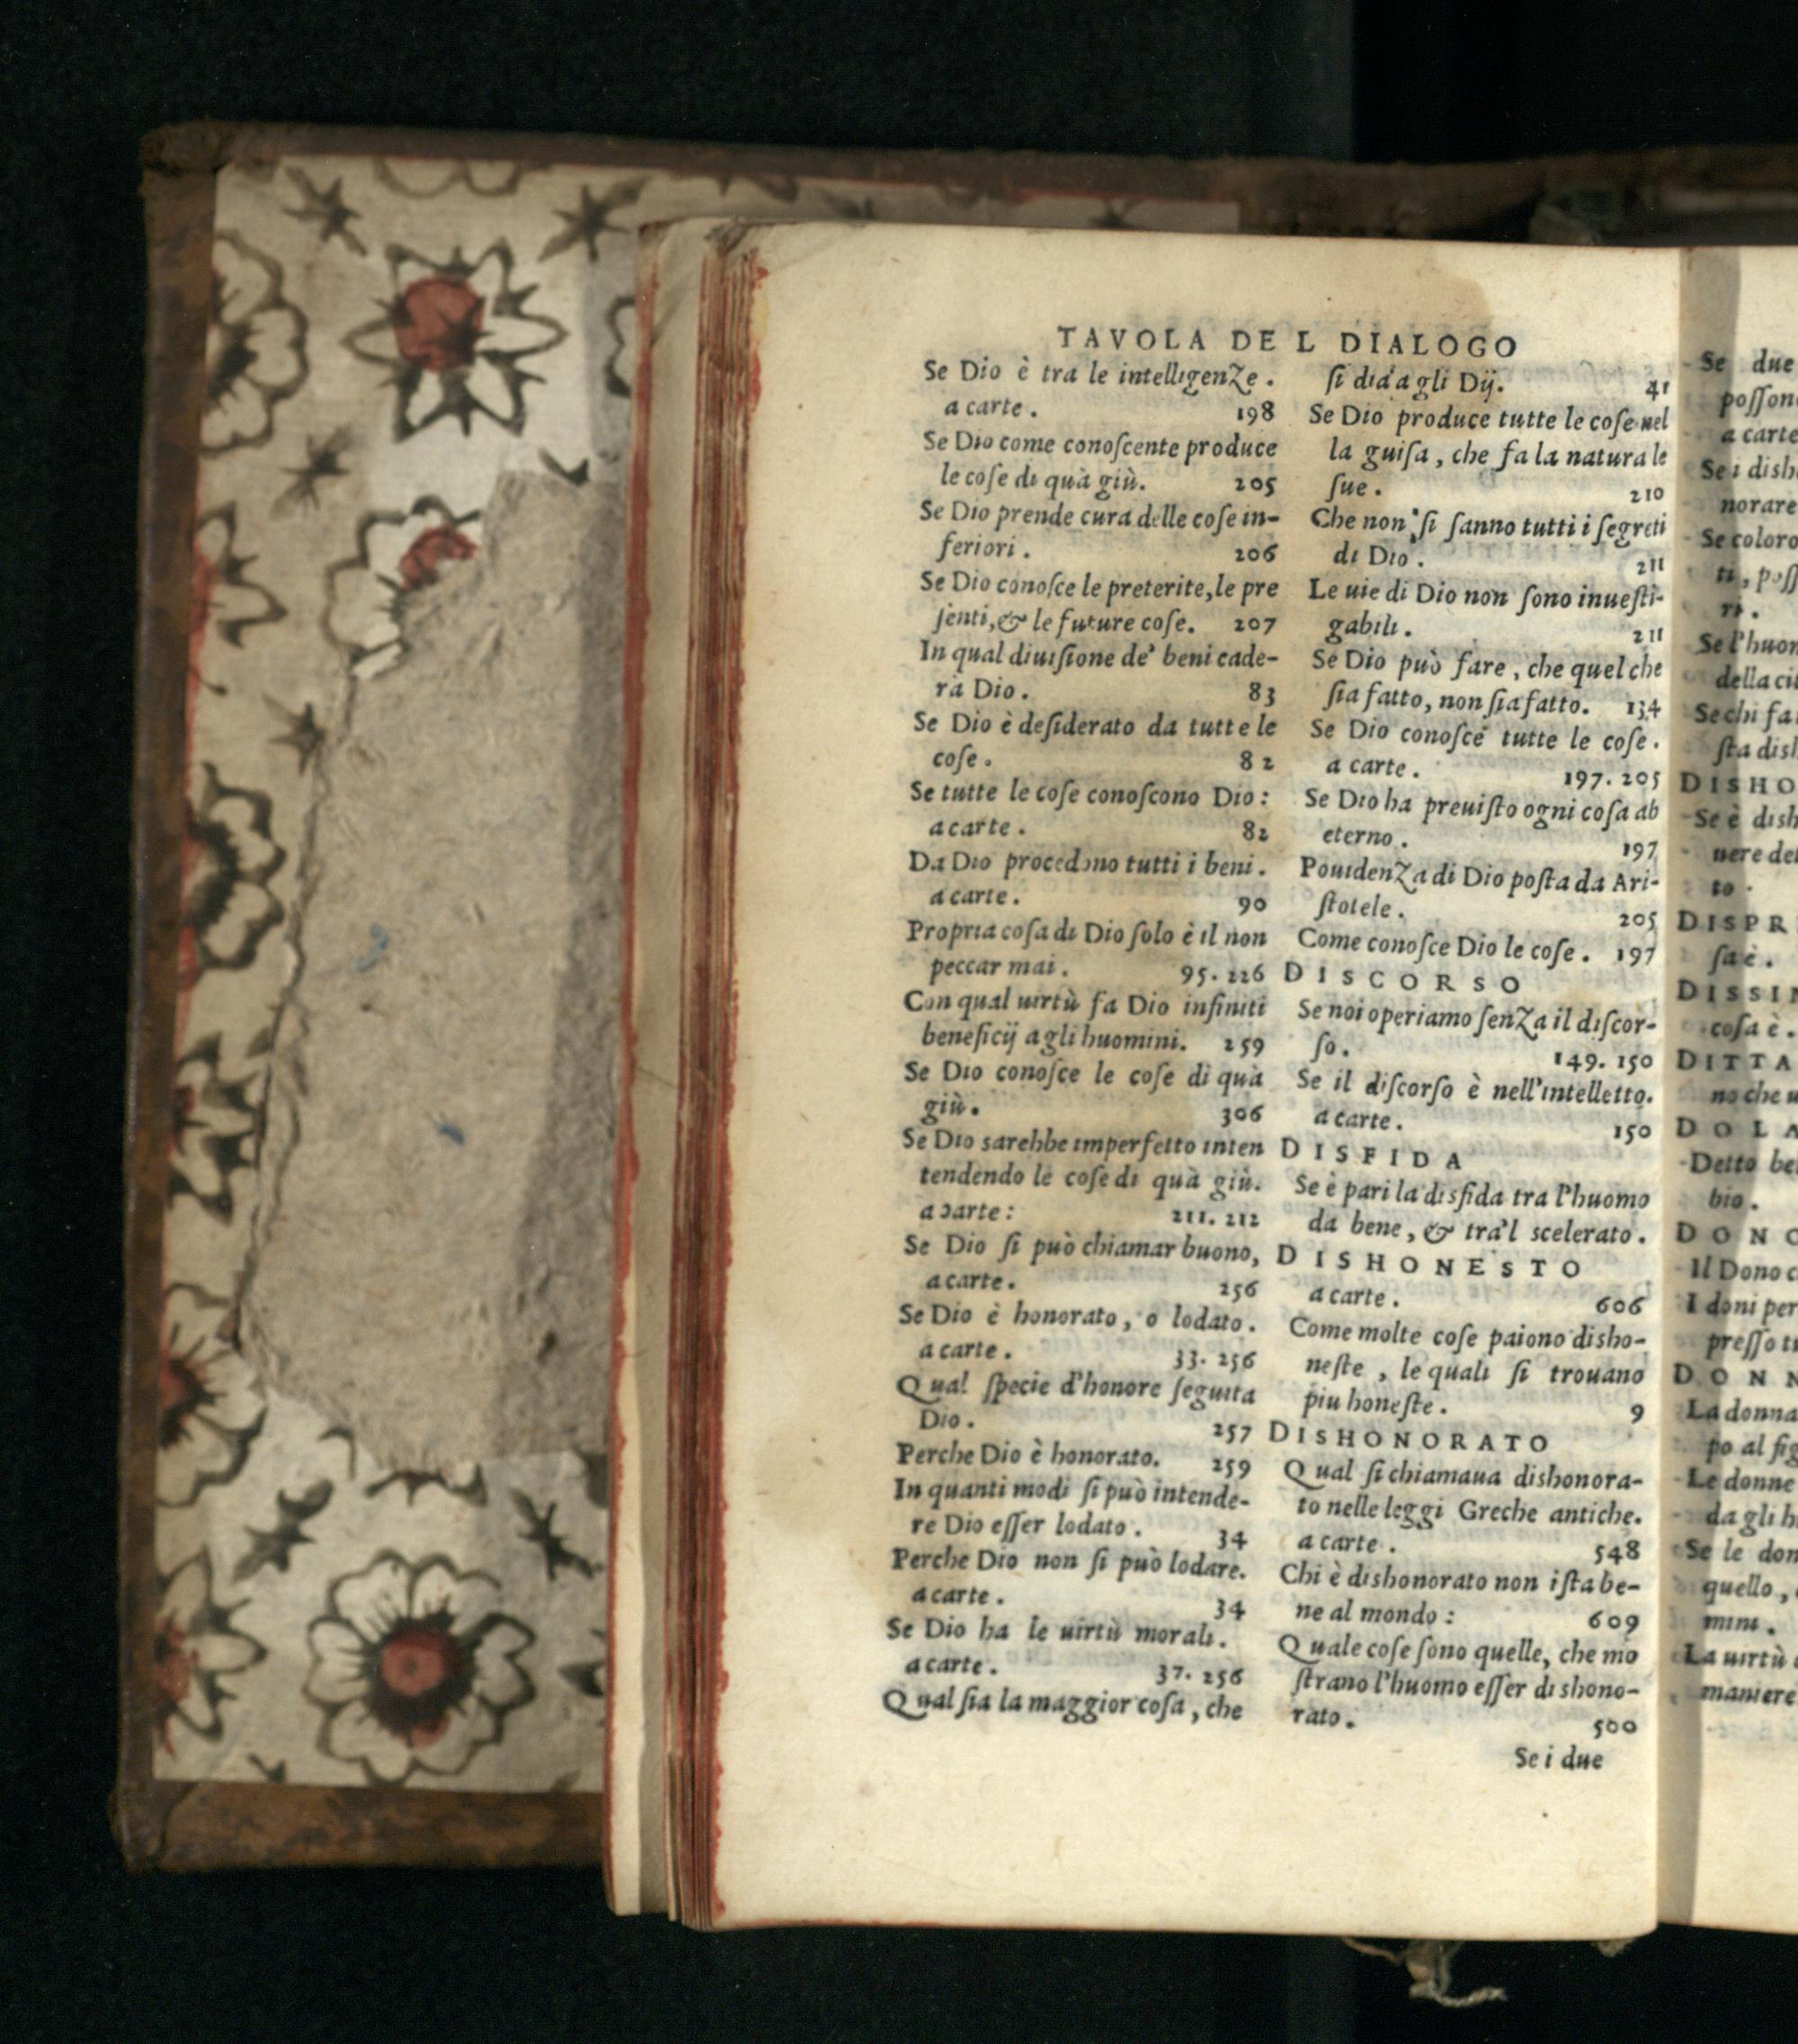 TAVOLA DEL DIALOGO
Se Dio è tra le intelligenze.
a carte. 198
Se Dio come conoſcente produce
le coſe di quà giù. 205
Se Dio prende cura delle coſe in-
feriori. 206
Se Dio conoſce le preterite, le pre
ſenti, & le future coſe. 207
In qual diuiſione de' beni cade-
rà Dio. 83
Se Dio è deſiderato da tutte le
coſe. 82
Se tutte le coſe conoſcono Dio:
a carte. 82
Da Dio procedono tutti i beni.
a carte. 90
Propria coſa di Dio ſolo è il non
peccar mai. 95. 226
Con qual uirtù fa Dio infiniti
beneficij a gli huomini. 259
Se Dio conoſce le coſe di quà
giù. 306
Se Dio sarebbe imperfetto inten
tendendo le coſe di quà giù.
a carte: 211. 212
Se Dio ſi può chiamar buono,
a carte. 256
Se Dio è honorato, o lodato.
a carte. 33. 256
Qual ſpecie d'honore ſeguita
Dio. 257
Perche Dio è honorato. 259
In quanti modi ſi può intende-
re Dio eſſer lodato. 34
Perche Dio non ſi può lodare.
a carte. 34
Se Dio ha le uirtù morali.
a carte. 37. 256
Qual ſia la maggior coſa, che
ſi dia a gli Dij. 41
Se Dio produce tutte le coſe nel
la guiſa, che fa la natura le
ſue. 210
Che non ſi ſanno tutti i ſegreti
di Dio. 211
Le uie di Dio non ſono inueſti-
gabili. 211
Se Dio può fare, che quel che
ſia fatto, non ſia fatto. 134
Se Dio conoſce tutte le coſe.
a carte. 197. 205
Se Dio ha preuiſto ogni coſa ab
eterno. 197
Pouidenza di Dio poſta da Ari-
ſtotele. 205
Come conoſce Dio le coſe. 197
DISCORSO
Se noi operiamo ſenza il diſcor-
ſo. 149. 150
Se il diſcorſo è nell'intelletto.
a carte. 150
DISFIDA
Se è pari la disfida tra l'huomo
da bene, & tra'l scelerato.
DISHONESTO
a carte. 606
Come molte coſe paiono disho-
neſte, le quali ſi trouano
piu honeſte. 9
DISHONORATO
Qual ſi chiamaua dishonora-
to nelle leggi Greche antiche.
a carte. 548
Chi è dishonorato non iſta be-
ne al mondo: 609
Quale coſe ſono quelle, che mo
ſtrano l'huomo eſſer dishono-
rato. 500
Se i due
Se due
poſſono
a carte
Se i disho
norare
Se coloro
ti, poſſ
ri.
Se l'huom
della cit
Se chi fa
ſta dish
DISHO
Se è dish
uere del
to.
DISPR
ſa è.
DISSIM
coſa è.
DITTA
no che u
DOLA
Detto be
bio.
DONO
Il Dono c
I doni per
preſſo tu
DONN
La donna
po al fig
Le donne
da gli h
Se le don
quello,
mini.
La uirtù
maniere